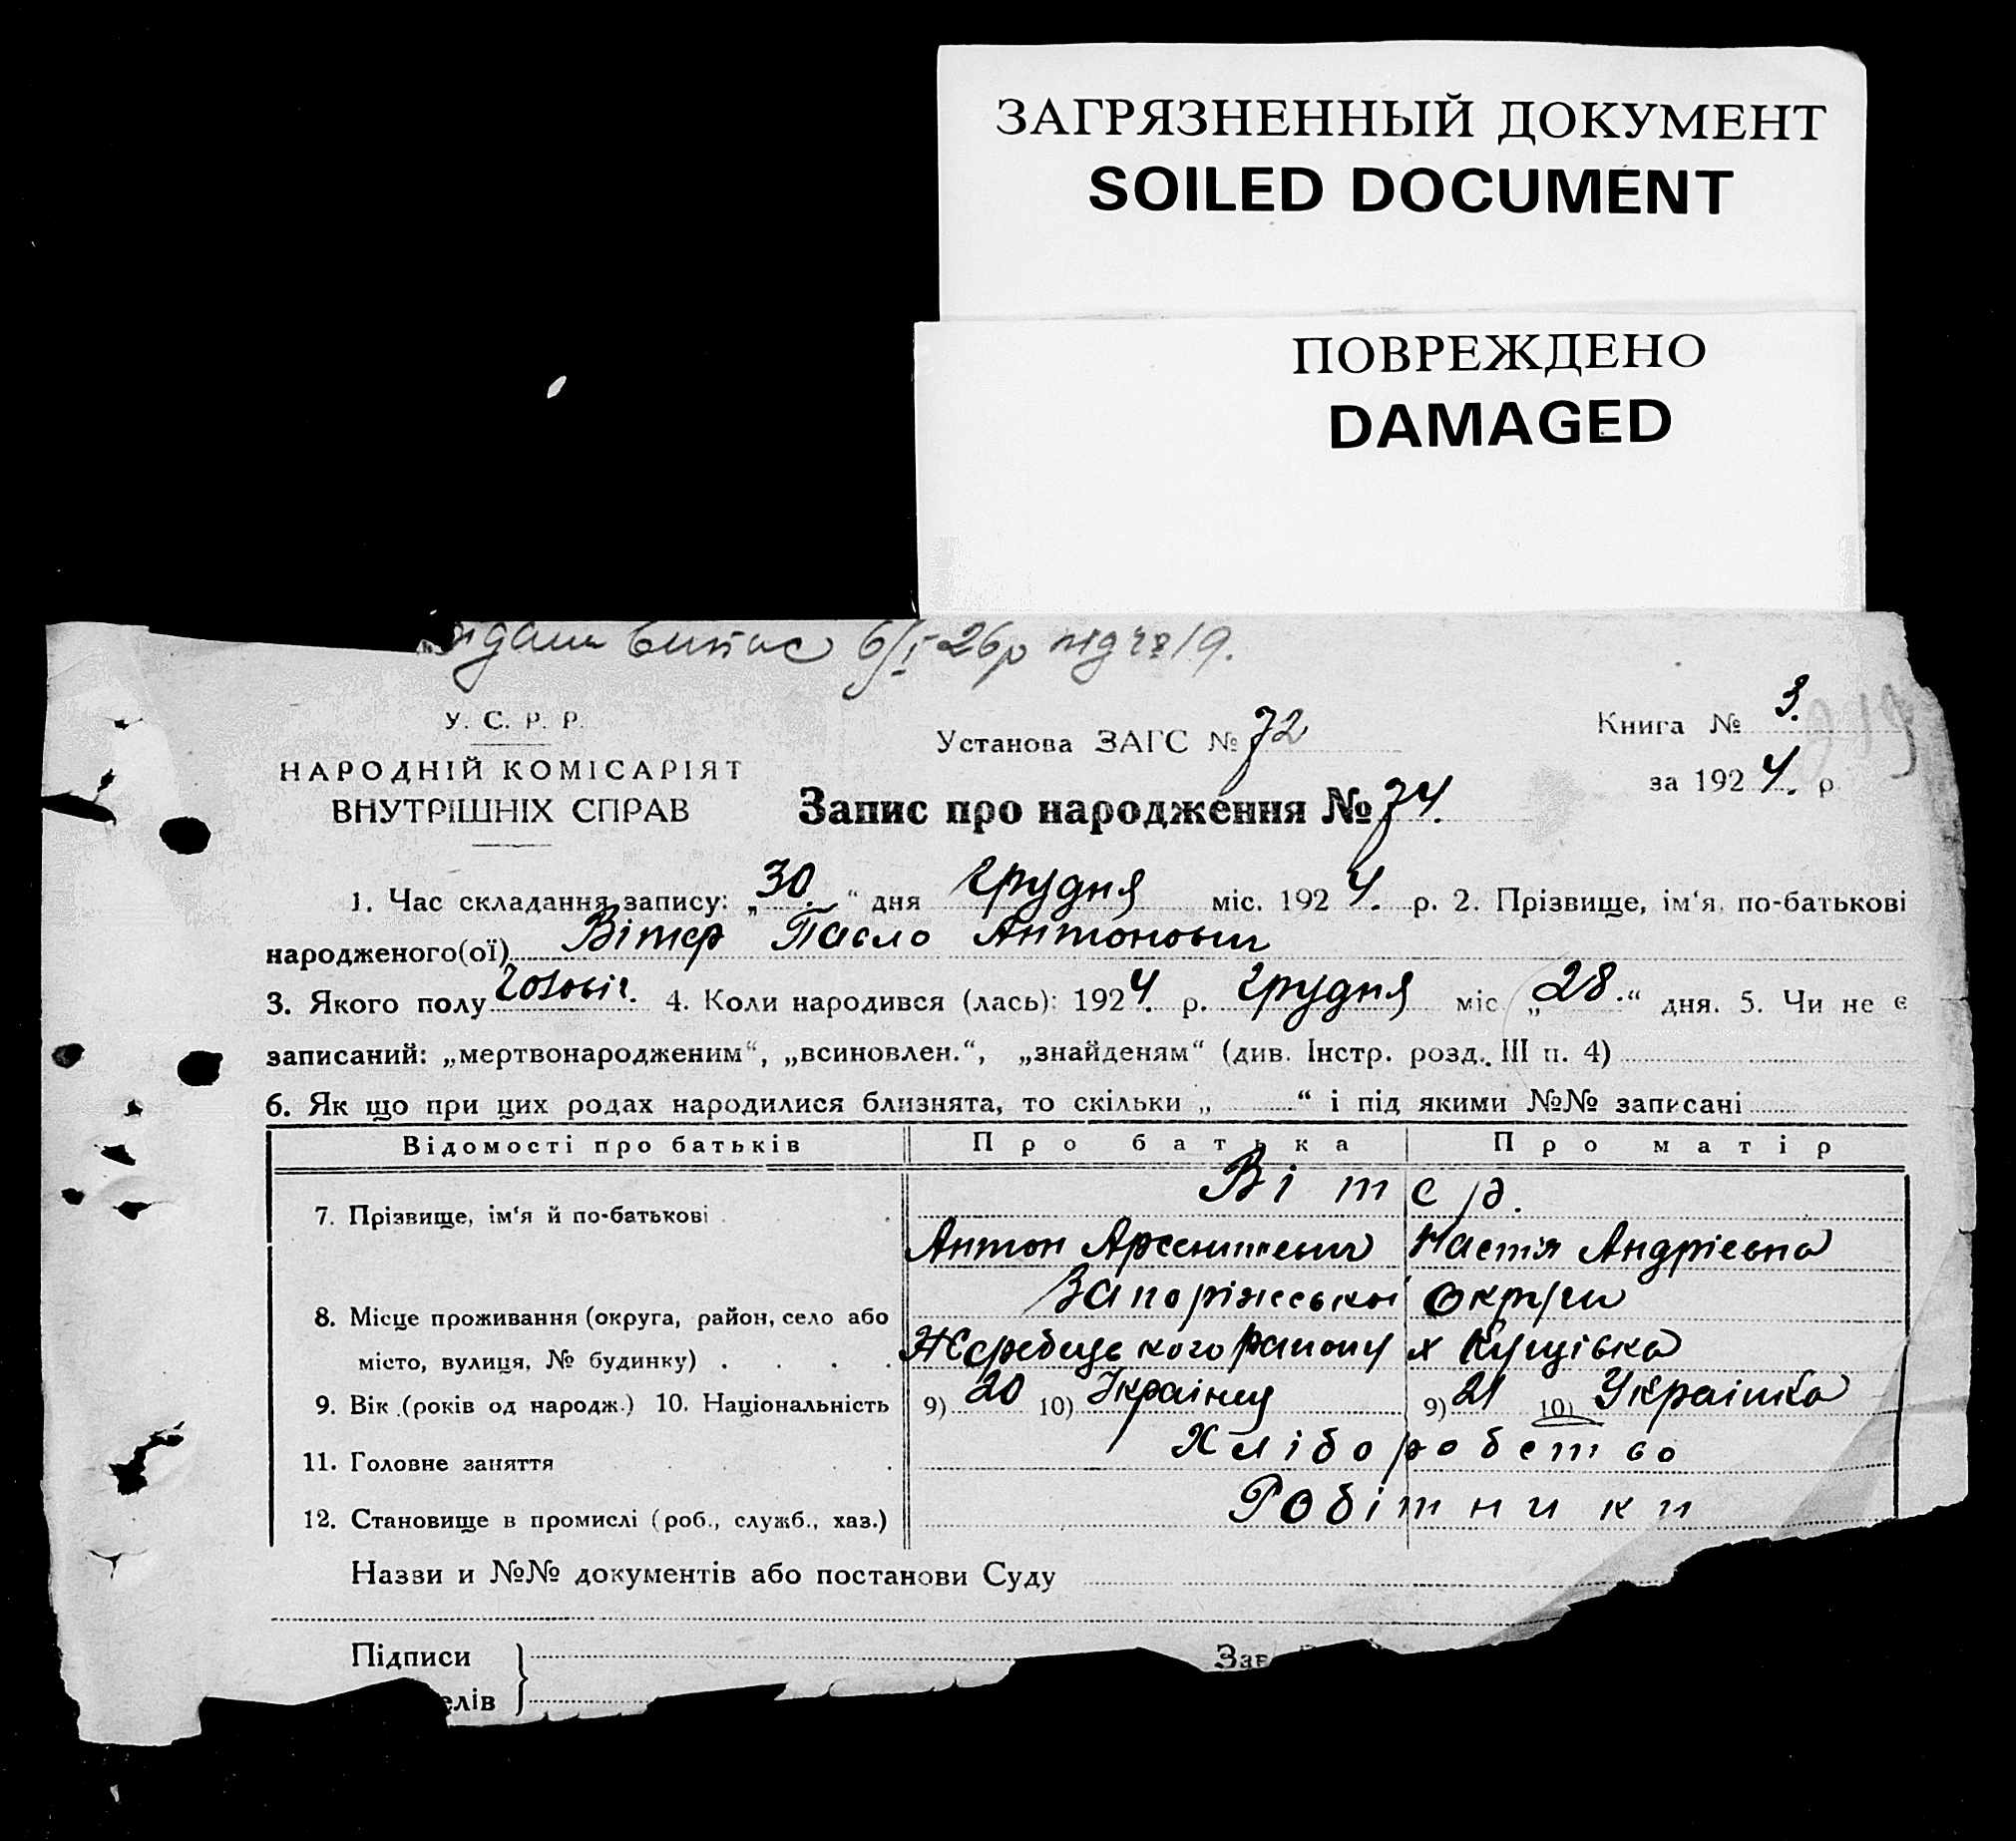 ЗАГРЯЗНЕННЫЙ ДОКУМЕНТ
SOILED DOCUMENT
ПОВРЕЖДЕНО
DAMAGED
випис 6/I 26р під № 19.
У. С. Р. Р.
НАРОДНІЙ КОМІСАРІЯТ
ВНУТРІШНІХ СПРАВ
Установа ЗАГС № 72
Книга № 3.
за 1924. р.
Запис про народження № 74.
1. Час складання запису: „30.“ дня грудня міс. 1924. р. 2. Прізвище, ім‘я, по-батькові
народженого(ої) Вітер Павло Антонович
3. Якого полу чоловіч. 4. Коли народився (лась): 1924. р. грудня міс „28.“ дня. 5. Чи не є
записаний: „мертвонародженим“, „всиновлен.“, „знайденям“ (див. Інстр. розд. III п. 4)
6. Як що при цих родах народилися близнята, то скільки „ “ і під якими №№ записані
Відомості про батьків Про батька Про матір
7. Прізвище, ім‘я й по-батькові Вітер.
Антон Арсентиевич Настя Андріевна
Запоріжської Округи
8. Місце проживання (округа, район, село або
місто, вулиця, № будинку) Жеребецького району х Кущівка
9. Вік (років од народж.) 10. Національність 9) 20 10) Українец 9) 21 10) Українка
11. Головне заняття Хліборобство
12. Становище в промислі (роб., служб., хаз.) Робітники
Назви и №№ документів або постанови Суду
Підписи Зав
елів